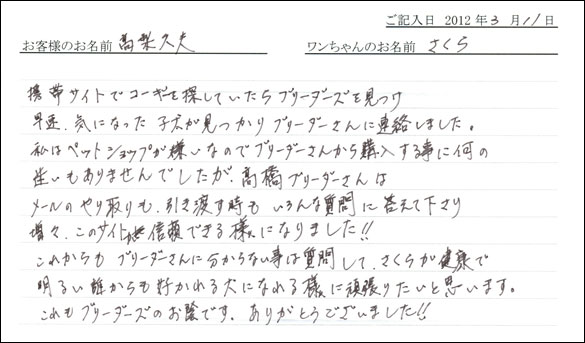 ご記入日 2012年3月11日
お客様のお名前 高梨久夫 ワンちゃんのお名前 さくら
携帯サイトでコーギーを探していたらブリーダーズを見つけ
早速、気になった子犬が見つかりブリーダーさんに連絡しました。
私はペットショップが嫌いなのでブリーダーさんから購入する事に何の
迷いもありませんでしたが、高橋ブリーダーさんは
メールのやり取りも、引き渡す時もいろんな質問に答えて下さり
増々、このサイトが信頼できる様になりました!!
これからもブリーダーさんに分からない事は質問して、さくらが健康で
明るい誰からも好かれる犬になれる様に頑張りたいと思います。
これもブリーダーズのお陰です。ありがとうございました!!